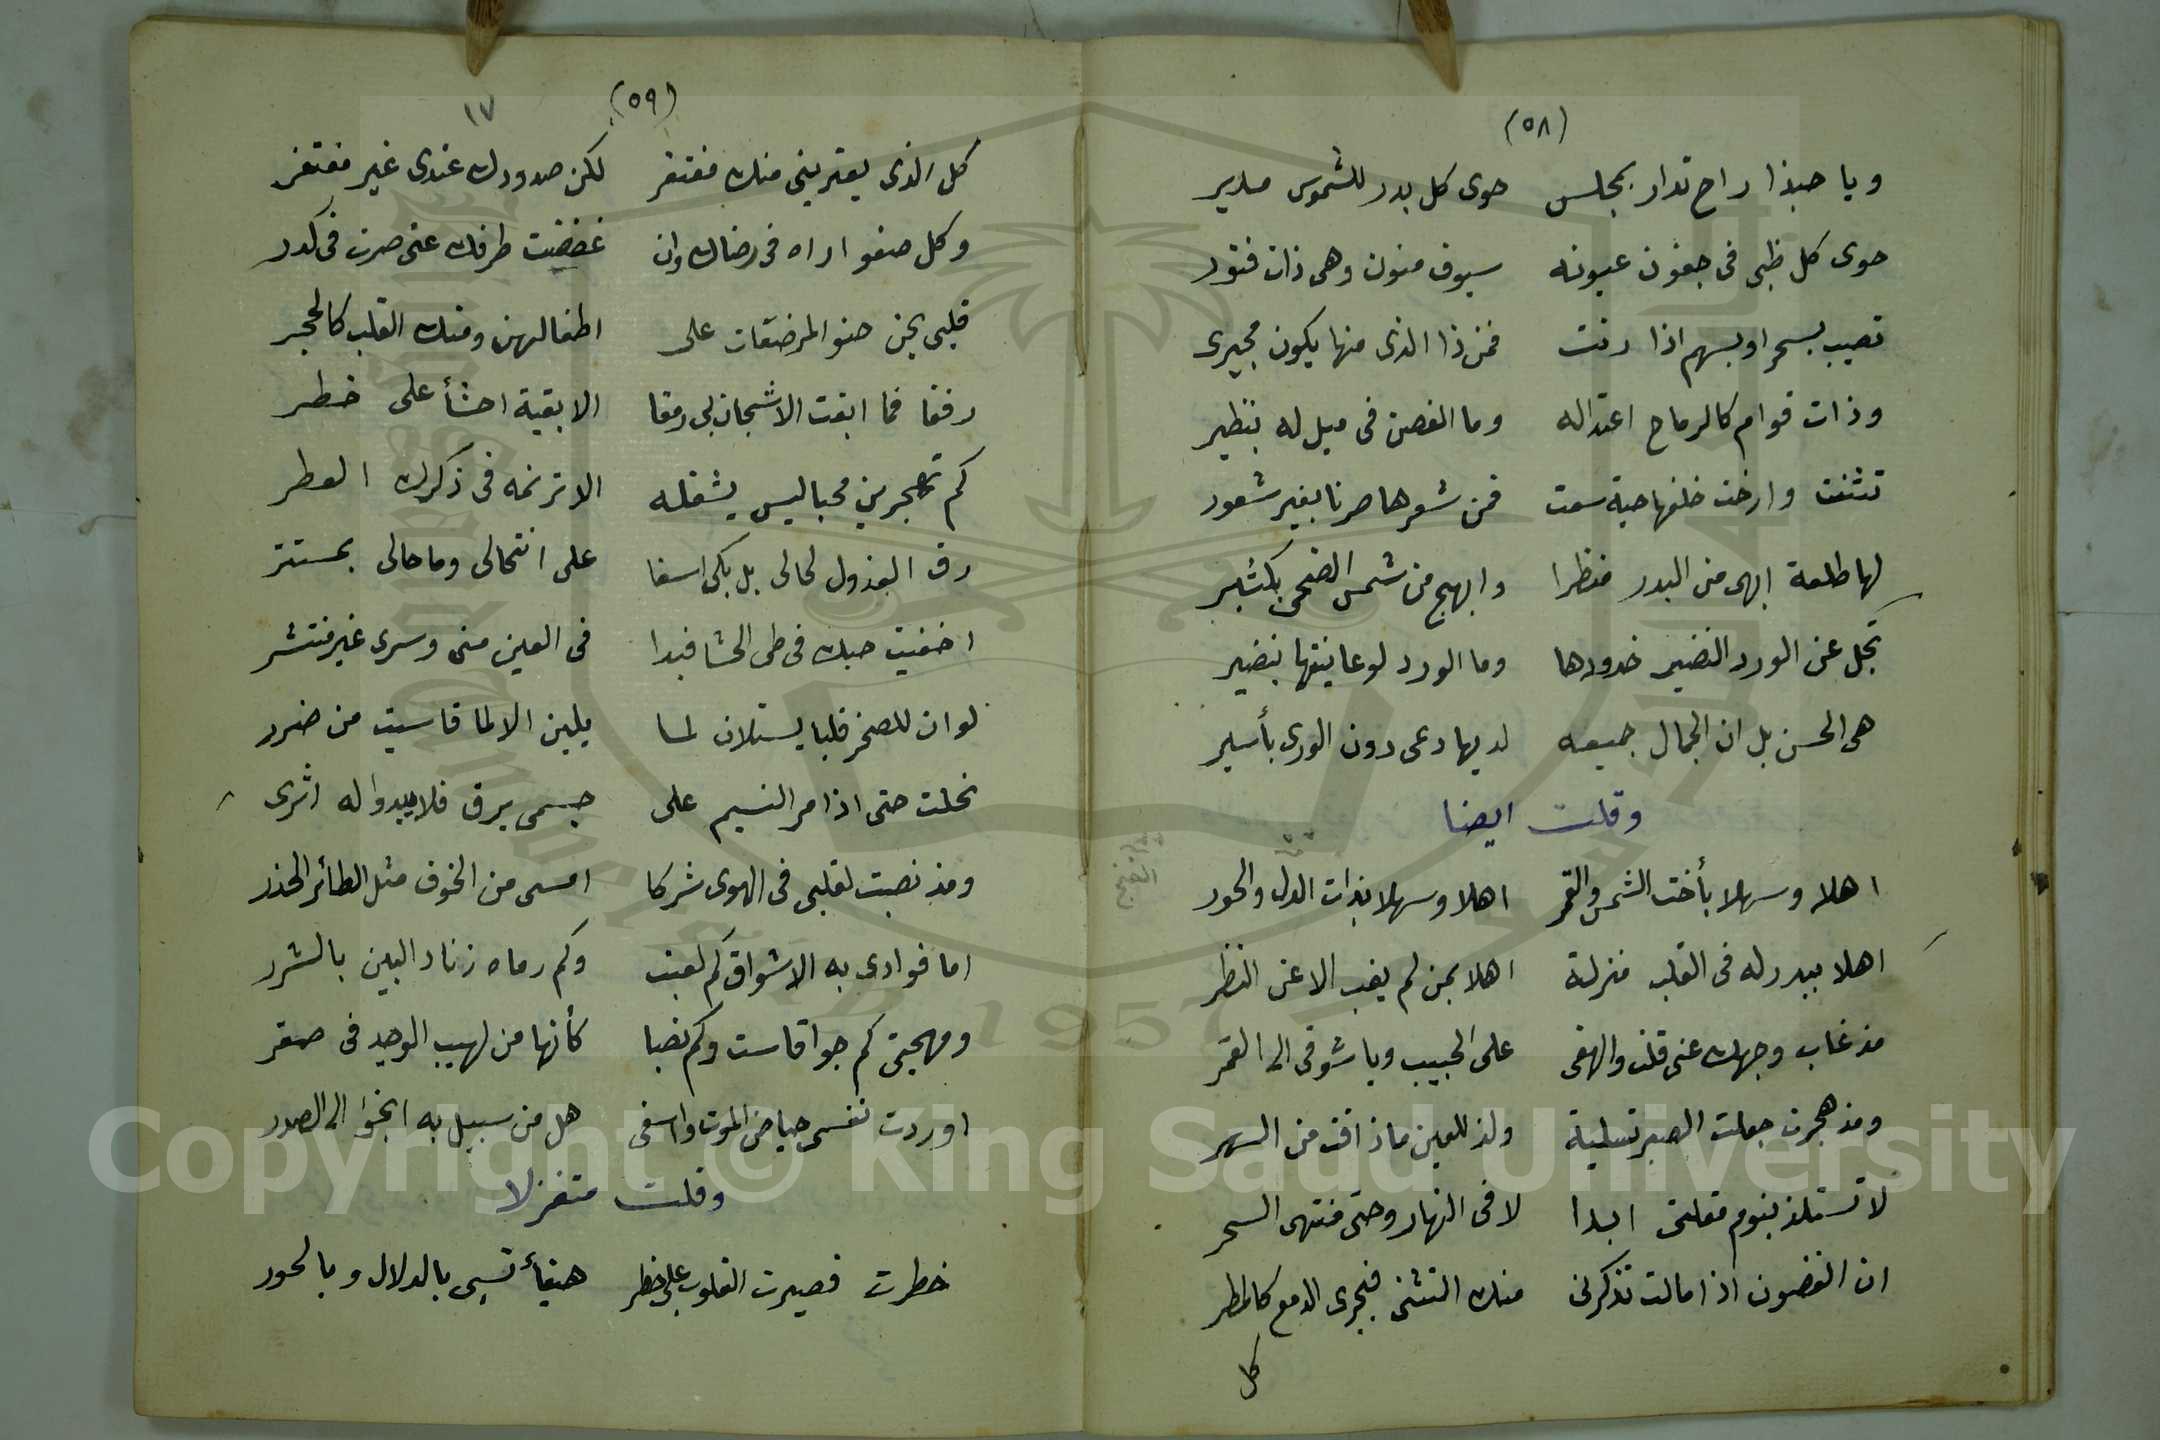 (٥٨)
ويا حبذا راح تدار بمجلس حوى كل بدر للشموس مدير
حوى كل ظبي فى جفون عيونه سيوف منون وهى ذات فتور
تصيب بسحر او بسهم اذا رنت فمن ذا الذى منها يكون مجيرى
وذات قوام كالرماح اعتداله وما الغصن فى ميل له بنظير
تثنت وارخت خلفها حية سعت فمن شعرها صرنا بغير شعور
لها طلعة ابهى من البدر منظرا وابهج من شمس الضحى بكثير
تجل عن الورد النضير خدودها وما الورد لو عاينتها بنضير
هى الحسن بل ان الجمال جميعه لديها دعى دون الورى بأسير
وقلت ايضا
اهلا وسهلا بأخت الشمس والقمر اهلا وسهلا بذات الدل والحور
اهلا ببدر له فى القلب منزلة اهلا بمن لم يغب الا عن النظر
مذ غاب وجهك عنى قلت والهفى على الحبيب ويا شوقى الى القمر
ومذ هجرت جعلت الصبر تسلية ولذ للعين ما ذاقت من السهر
لا تستلذ بنوم مقلتى ابدا لا فى النهار وحتى منتهى السحر
ان الغصون اذا مالت تذكرنى منك التثنى فيجرى الدمع كالمطر
كل
(٥٩)
١٧
كل الذى يعتريني منك مغتفر لكن صدودك عندى غير مغتفر
وكل صفو اراه فى رضاك وان غضضت طرفك عنى صرت فى كدر
قلبى يحن حنو المرضعات على اطفالهن ومنك القلب كالحجر
رفقا فما ابقت الاشجان لى رمقا الا بقية احشأ على خطر
كم تهجرين محبا ليس يشغله الا ترنمه فى ذكرك العطر
رق العذول لحالى بل بكى اسفا على انتحالى وما حالى بمستتر
اخفيت حبك فى طى الحشا فبدا فى العين منى وسرى غير منتشر
لو ان للصخر قلبا يستلان لما يلين الا لما قاسيت من ضرر
نحلت حتى اذا مر النسيم على جسمى يرق فلا يبدوا له اثرى
ومذ نصبت لقلبى فى الهوى شركا امسى من الخوف مثل الطائر الحذر
اما فوادى به الاشواق كم لعبت وكم رماه زناد البين بالشرر
ومهجتى كم جوا قاست وكم نصبا كأنها من لهيب الوجد فى صقر
اوردت نفسى حياض الموت واسفى هل من سبيل به انجوا الى الصدر
وقلت متغزلا
خطرت فصيرت القلوب على خطر هيفأ تسبى بالدلال وبالحور
Copyright © King Saud University
1957